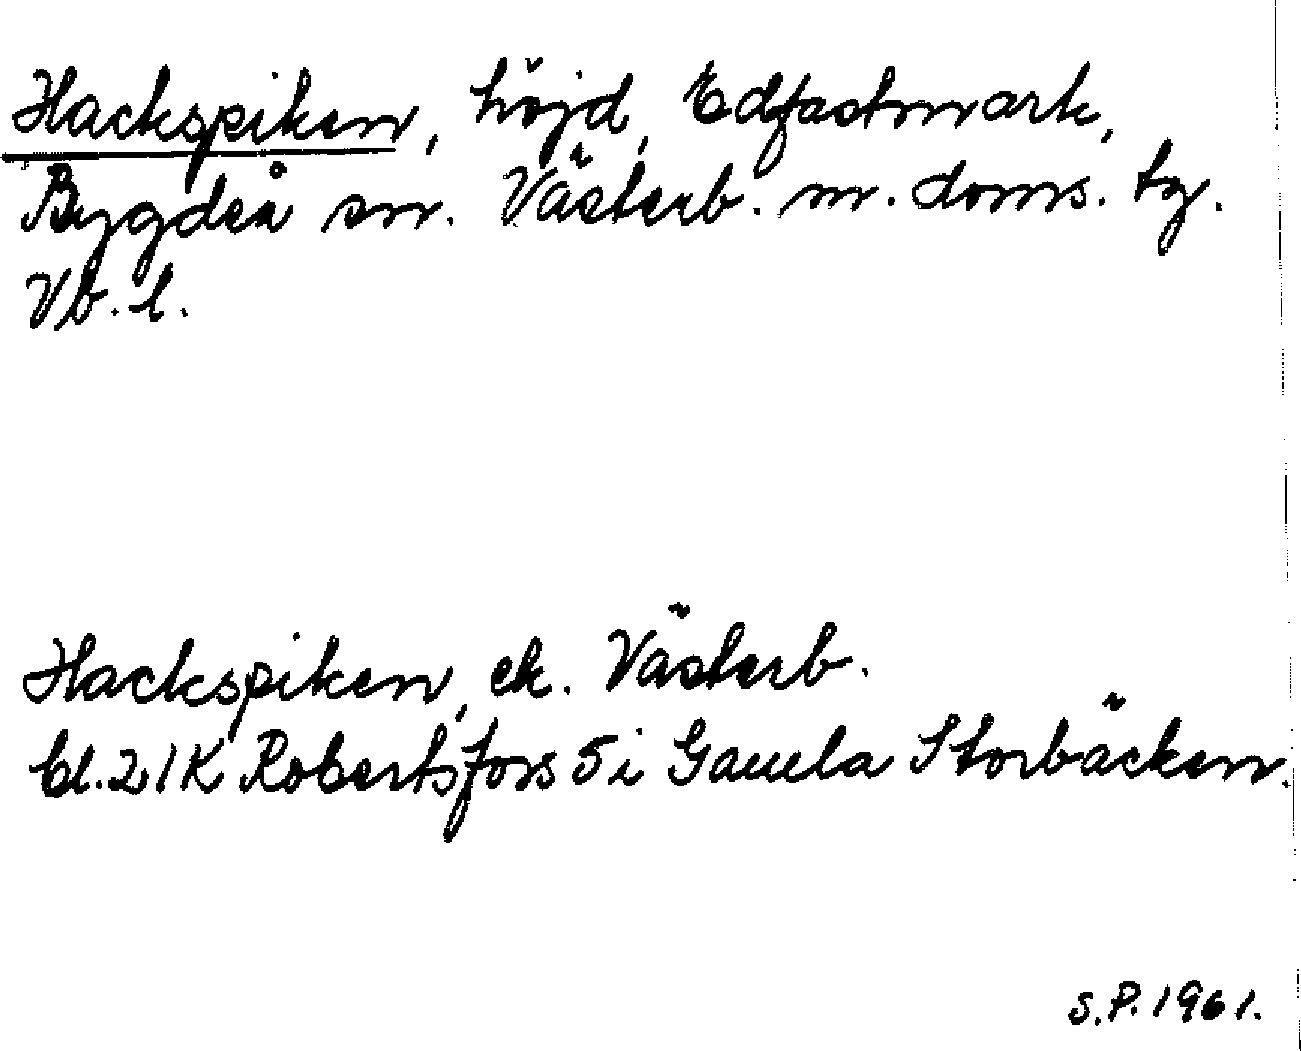 Hackspiken, höjd, Edfastmark,
Bygdeå sn. Västerb. n. doms. tg.
Vb. l.
Hackspiken, ek. Västerb.
bl. 21K Robertsfors 5i Gamla Storbäcken.
S.P. 1961.